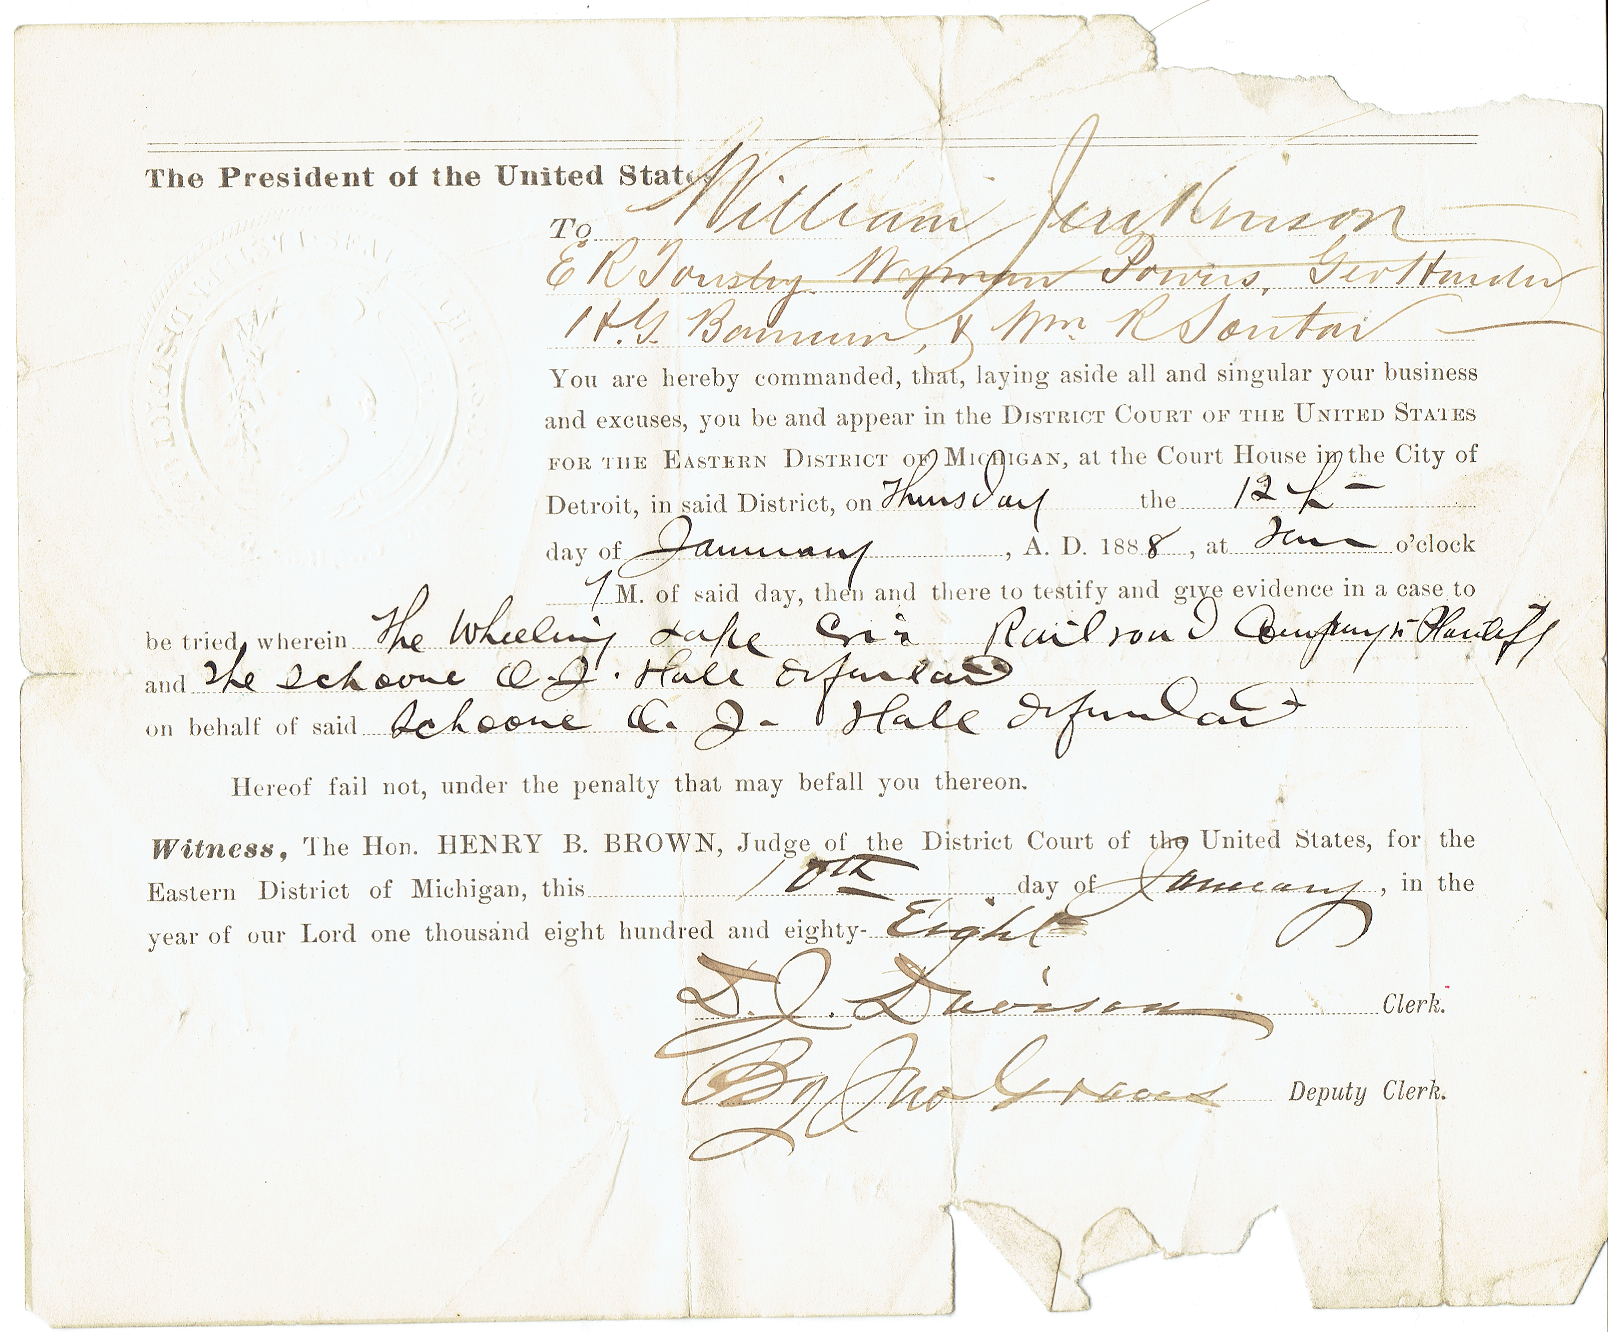 The President of the United States
To William Jenkinson
E R Tousley Wyman Powers, Geo Harder
H. G. Bannum, & Wm R Soutar
You are hereby commanded, that, laying aside all and singular your business
and excuses, you be and appear in the DISTRICT COURT OF THE UNITED STATES
FOR THE EASTERN DISTRICT OF MICHIGAN, at the Court House in the City of
Detroit, in said District, on Thursday the 12th
day of January, A. D. 1888, at ten o'clock
M. of said day, then and there to testify and give evidence in a case to
be tried, wherein The Wheeling Lake Erie Railroad Company is Plaintiff
and The Schooner Hale Defendant
on behalf of said Schooner Hale Defendant
Hereof fail not, under the penalty that may befall you thereon.
Witness, The Hon. HENRY B. BROWN, Judge of the District Court of the United States, for the
Eastern District of Michigan, this 10th day of January, in the
year of our Lord one thousand eight hundred and eighty-Eight
D. J. Davison Clerk.
By Jno Graves Deputy Clerk.